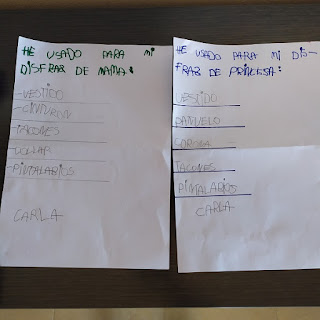 HE USADO PARA MI
DISFRAZ DE MAMA:
-VESTIDO
-CINTURON
-TACONES
-COLLAR
-PINTALABIOS
CARLA
HE USADO PARA MI DIS-
FRAZ DE PRINCESA:
VESTIDO
PAÑUELO
CORONA
TACONES
PINTALABIOS
CARLA